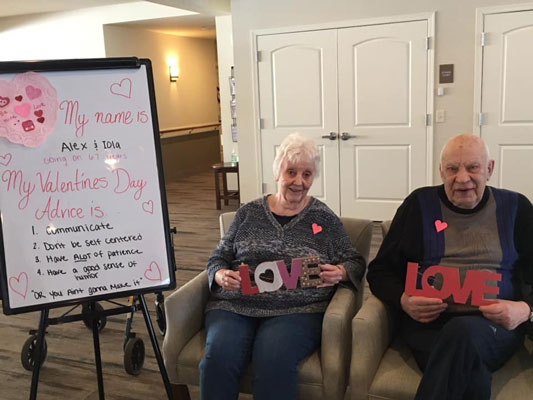 My name is
Alex & Iola
Going on 67 years
My Valentines Day
Advice is
1. Communicate
2. Don't be self centered
3. Have ALOT of patience
4. Have a good sense of
humor
"OR YOU Aint gonna Make it"
LOVE
LOVE